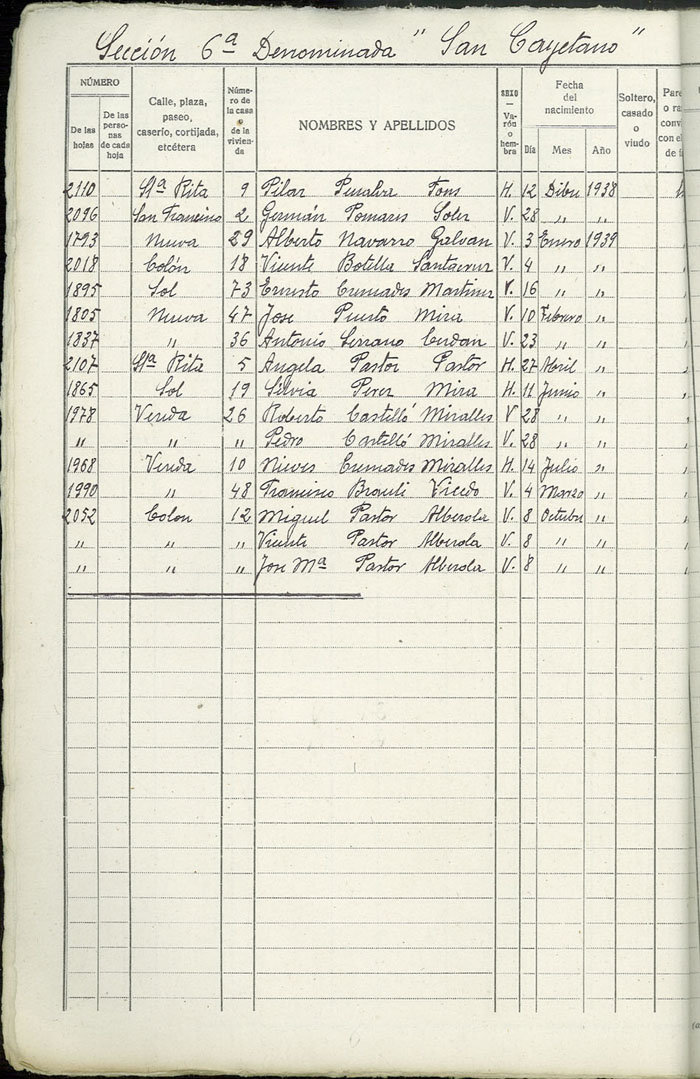 Sección 6ª Denominada "San Cayetano"
NÚMERO
De las hojas
De las personas de cada hoja
Calle, plaza, paseo, caserío, cortijada, etcétera
Número de la casa o de la vivienda
NOMBRES Y APELLIDOS
SEXO — Varón o hembra
Fecha del nacimiento
Día Mes Año
Soltero, casado o viudo
2110 Stª Rita 9 Pilar Penalva Tons H. 12 Dibre 1938
2096 San Francisco 2 Germán Pomares Soler V. 28 " "
1793 Nueva 29 Alberto Navarro Galvan V. 3 Enero 1939
2018 Colón 18 Vicente Botella Santacruz V. 4 " "
1895 Sol 73 Ernesto Cremades Martinez V. 16 " "
1805 Nueva 47 Jose Puerto Mira V. 10 Febrero "
1837 " 36 Antonio Serrano Cerdan V. 23 " "
2107 Stª Rita 5 Angela Pastor Pastor H. 27 Abril "
1865 Sol 19 Silvia Perez Mira H. 11 Junio "
1978 Vereda 26 Roberto Castelló Miralles V 28 " "
" " " Pedro Castelló Miralles V. 28 " "
1968 Vereda 10 Nieves Cremades Miralles H. 14 Julio "
1990 " 48 Francisco Brauli Vicedo V. 4 Marzo "
2052 Colon 12 Miguel Pastor Alberola V. 8 Octubre "
" " " Vicente Pastor Alberola V. 8 " "
" " " Jose Mª Pastor Alberola V. 8 " "